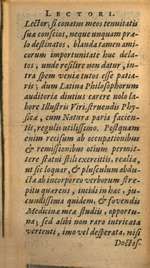 LECTORI.
Lector, si conatus meos tenuitatis
suæ conscios, neque unquam præ-
lo destinatos, blanda tamen ami-
corum importunitate huc dela-
tos, unde resilire non datur, in-
tra spem veniæ tutos esse patia-
ris; dum Latina Philosophorum
auditoria diutius carere nolo la-
bore Illustris Viri, struendis Phy-
sicæ, cum Natura paria facien-
tis, regulis utilissimo. Postquam
enim recisum ab occupationibus
& remissionibus otium permit-
tere statui stili exercitiis, realia,
ut sic loquar, & plusculum abdu-
cta ab incorporeo verborum stre-
pitu quærens, incidi in hæc, ju-
cundissima quidem, & fovendis
Medicinæ mea studiis, opportu-
na; sed alibi non raro intricata
vertenti, imo vel desperata, nisi
Doctos